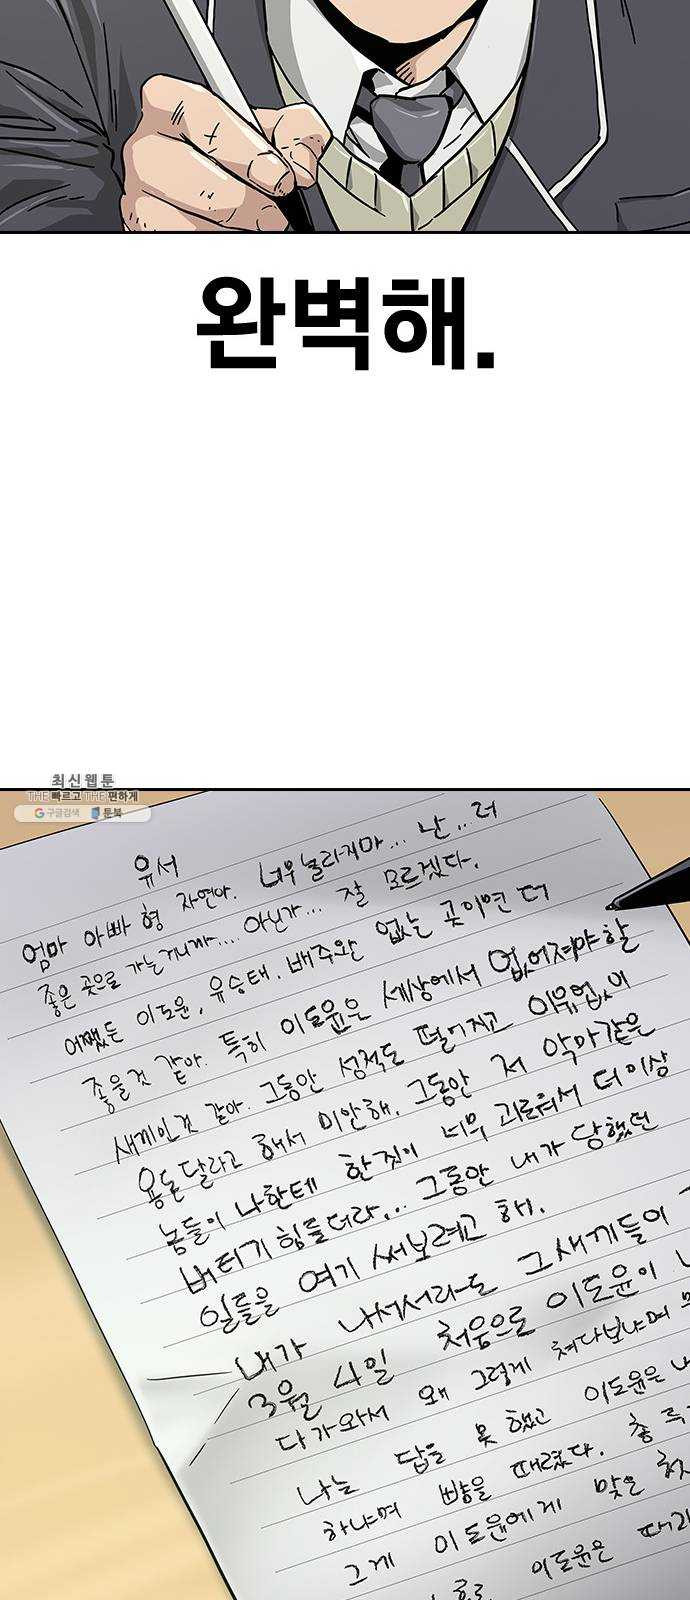 완벽해.
최신웹툰
THE빠르고 THE편하게
구글검색 툰북
유서
엄마 아빠 형 자연아. 너무 놀라지마... 난.. 더
좋은 곳으로 가는거니까.... 아닌가... 잘 모르겠다.
어쨌든 이도윤, 유승태, 배주완 없는 곳이면 더
좋을것 같아. 특히 이도윤은 세상에서 없어져야 할
새끼인것 같아. 그동안 성적도 떨어지고 이유없이
용돈달라고 해서 미안해. 그동안 저 악마같은
놈들이 나한테 한짓이 너무 괴로워서 더 이상
버티기 힘들더라... 그동안 내가 당했던
일들을 여기 써보려고 해.
내가 나서서라도 그새끼들이
3월 4일 처음으로 이도윤이
다가와서 왜 그렇게 쳐다보냐며
나는 답을 못 했고 이도윤은
하냐며 뺨을 때렸다. 총
그게 이도윤에게 맞은
이도윤은